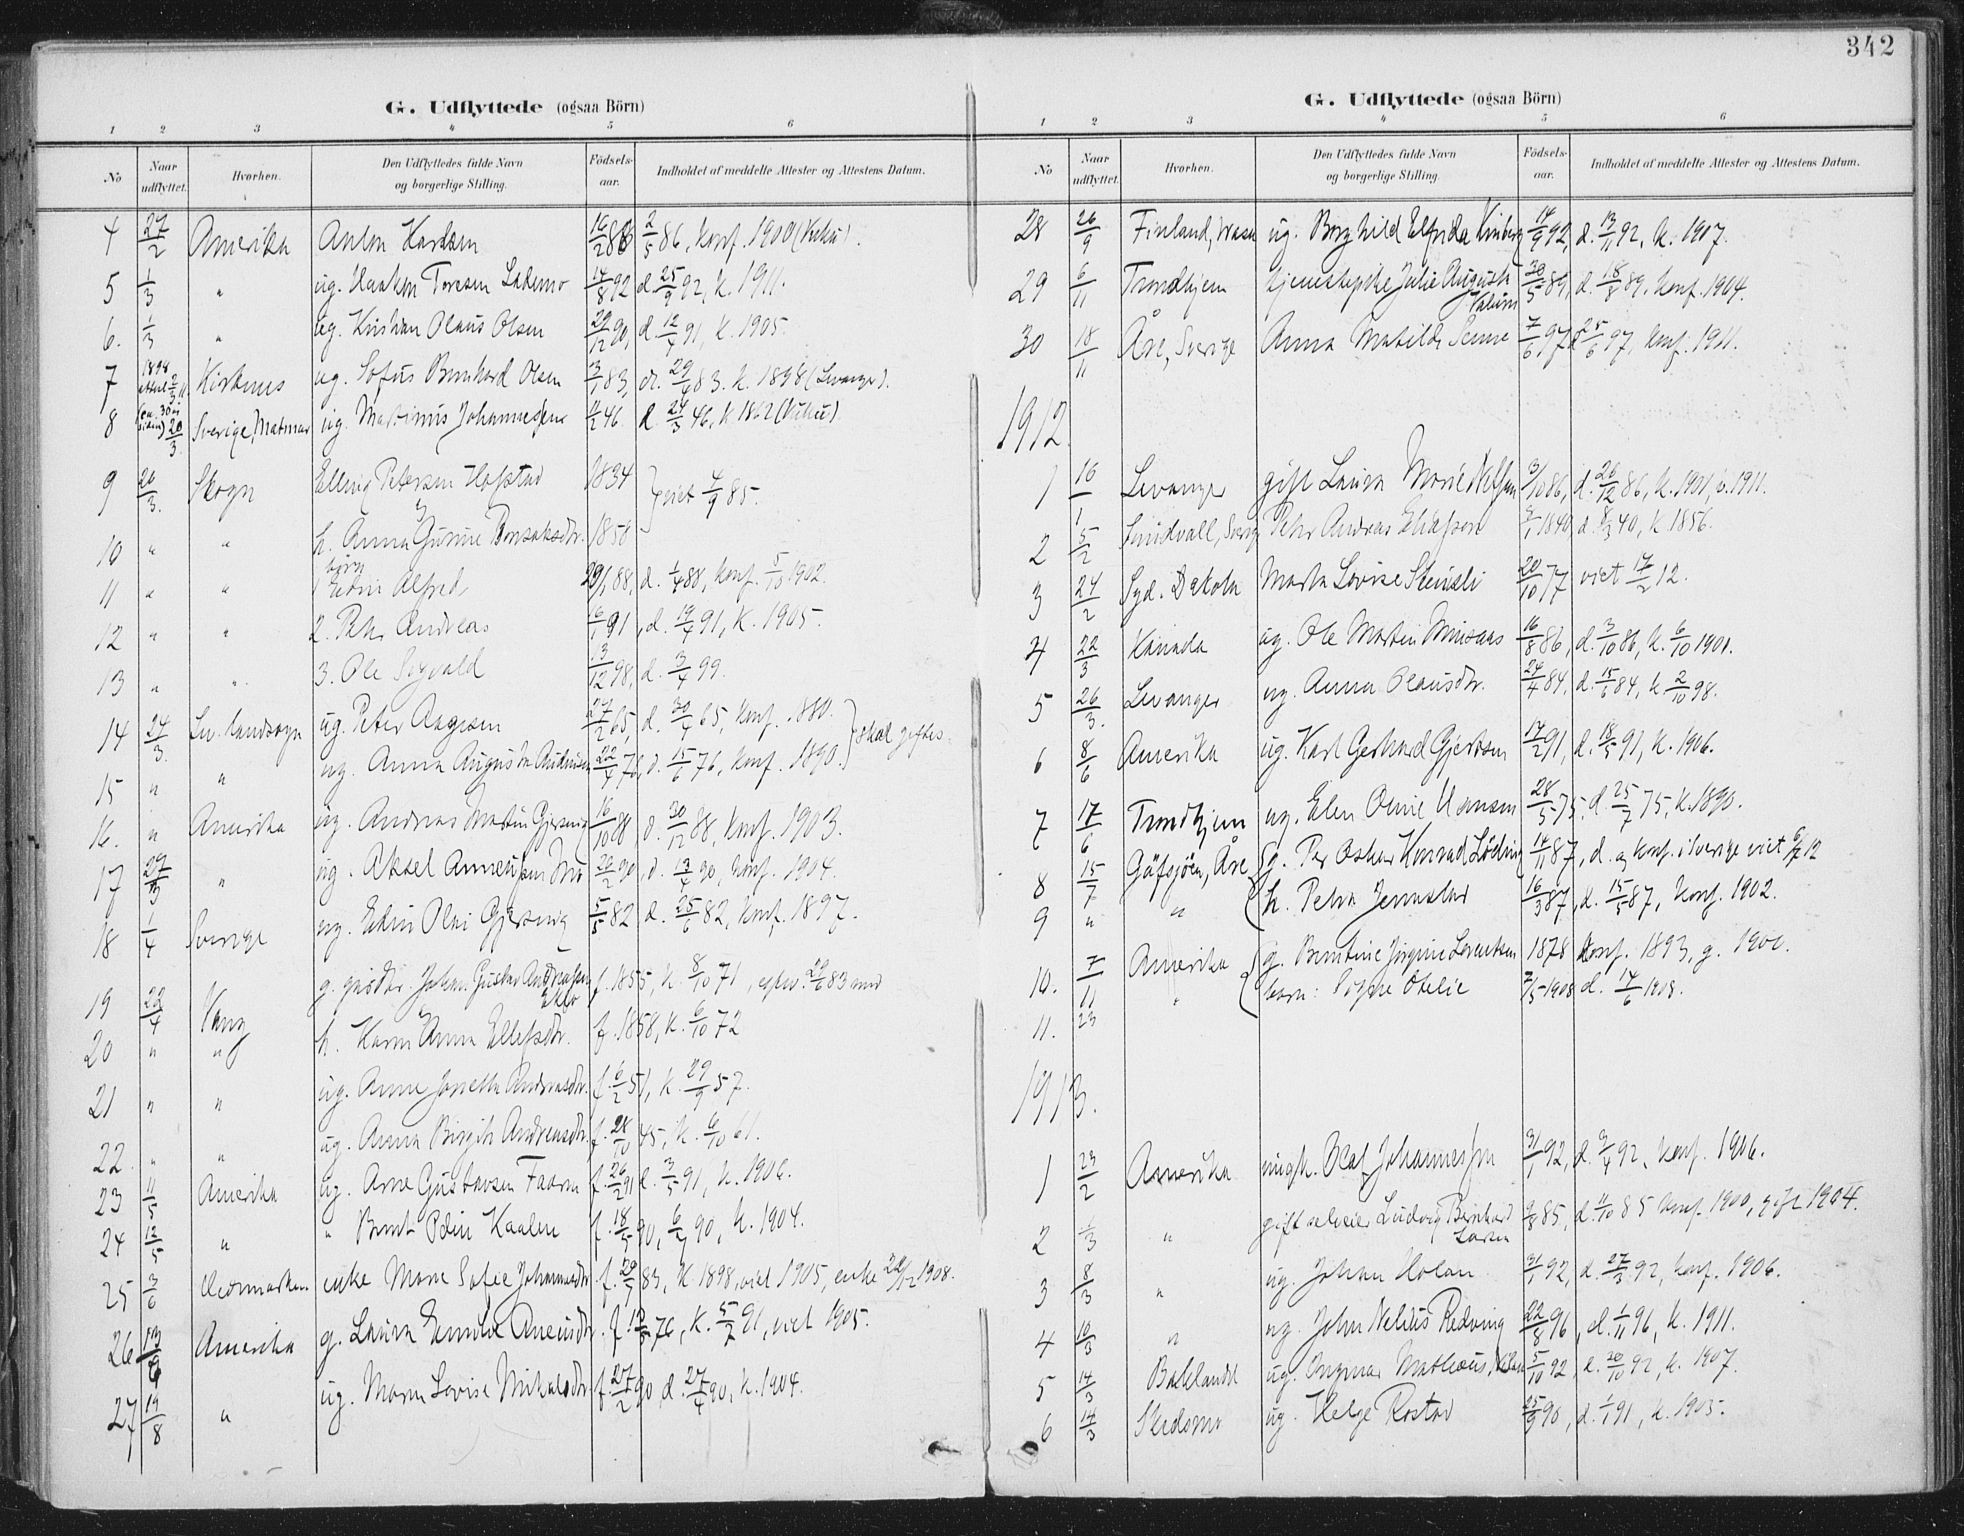 342
G. Udflyttede (ogsaa Börn)
1 2 3 4 5 6
No Naar udflyttet. Hvorhen. Den Udflyttedes fulde Navn og borgerlige Stilling. Födsels-aar. Indholdet af meddelte Attester og Attestens Datum.
4 27/2 Amerika Anton 16/2 86 2/5 86, konf. 1900
5 1/3 " ug. Haakon Toresen 14/8 92 d. 25/9 92, k. 1911.
6. 1/3 " ug. Kristian Olaus Olsen 29/12 90, d. 12/4 91, k. 1905.
7 Kirkenes ug. Sofus Bernhard Olsen 3/1 83, d. 29/4 83. k. 1898 (Levanger).
8 20/3 Sverige, Matmar ug. Martinus Johannessen 46 d. 24/3 46, k 1862
9 26/3. Skogn Elling Petersen Hofstad 1834 } viet 4/9 85.
10 " " h. Anna Gurine Tomsaksdtr. 1858
børn
11 " " 1 Edvin Alfred 29/1 88, d. 1/4 88, konf. 5/10 1902.
12 " " 2. Peter Andreas 16/1 91, d. 19/4 91, k. 1905.
13 " " 3. Ole Sigvald 13/12 98, d. 3/4 99.
14 24/3. Lev. landsogn ug. Peter Aagesen 27/2 65, d. 30/4 65, konf. 1880. } skal giftes.
15 " " ug. Anna Augusta 22/4 76, d. 15/6 76, konf. 1890.
16. " Amerika ug. Andreas Martin 16/10 88, d. 30/12 88, konf. 1903.
17 27/3 " ug. Aksel Anneus 26/2 90, d. 13/4 90, konf. 1904.
18 1/4 Sverige ug. Edvin Olai 5/5 82 d. 25/6 82, konf. 1897.
19 22/4 Vang g. Johan Gustav Andreassen f. 1855, k. 8/10 71
20 " " h. Karen Anna Ellefsdtr. f. 1858, k. 6/10 72
21 " " ug. Anne Andreasdtr. f. 6/2 51, k. 29/9 57.
22. " " ug. Anna Birgitte Andreasdtr. f. 28/10 45, k. 6/10 61.
23 11/5 Amerika ug. Arne Gustavsen f. 26/2 91 d. 3/5 91, k. 1906.
24 12/5 " " Bernt Kaalen f. 18/5 90, 6/7 90, k. 1904.
25 3/6 Hedmarken enke Marie Sofie Johannesdtr f. 29/7 83, k 1898, viet 1905, enke 1908.
26 Amerika g. Laura Aneusdtr. f. 76, k. 5/7 91, viet 1905.
27 19/8 " ug. Maren Lovise Mikalsdtr f. 27/2 90, d. 27/4 90, k. 1904.
G. Udflyttede (ogsaa Börn)
1 2 3 4 5 6
No Naar udflyttet. Hvorhen. Den Udflyttedes fulde Navn og borgerlige Stilling. Födsels-aar. Indholdet af meddelte Attester og Attestens Datum.
28 26/9 Finland, Wasa ug. Borghild Elfrida 14/9 92, d. 13/11 92, k. 1907.
29 6/11 Trondhjem tjenestepike Julie Augusta 30/5 89, d. 18/8 89. konf. 1904.
30 18/11 Åre, Sverige Anna Matilde 7/6 97, d. 25/6 97, konf. 1911.
1912.
1 16/1 Levanger gift Laura Marie 3/10 86, d. 26/12 86, k. 1901, v. 1911.
2 5/2 Sundvall, Sverig Peter Andreas 1840, d. 8/3 40, k 1856.
3 24/2 Syd. Dakota Marta Lovise Stensli 20/10 77 viet 17/2 12.
4 22/3 Kanada ug. Ole Martin Minsaas 16/8 86, d. 3/10 86, k. 6/10 1901.
5 26/3. Levanger ug. Anna Olausdtr. 24/4 84, d. 15/6 84, k. 2/10 98.
6 8/6 Amerika ug. Karl Gerhard Gjertsen 17/2 91, d. 18/5 91, k. 1906.
7 17/6 Trondhjem ug. Elen Oline Hansen 28/5 75, d. 25/7 75, k. 1890.
8 15/7 Gäfsjöen, Åre g. Per Oskar Konrad 14/11 87, d. og konf. i Sverige viet 12
9 " " h. Petra Jernstad 16/3 87, d. 15/5 87, konf. 1902.
10. 7/11 Amerika g. Berntine Jørgine Lorentsen 1878 konf. 1893, g. 1900.
11. 23 " barn: Otelie 7/5 1908 d. 14/6 1908.
1913.
1 23/2 Amerika ungk. Olaf Johannessen 31/1 92, d. 3/4 92, konf. 1906.
2 1/3 " gift Ludvig Bernhard Larsen 9/8 85, d. 11/10 85 konf. 1900, gift 1904.
3 8/3 " ug. Johan Holan 31/1 92, d. 27/3 92, konf. 1906.
4 10/3 " ug. John Nelius Redving 22/8 96, d. 1/11 96, k. 1911.
5 14/3 Baklandet ug. Ingvar Matheus 5/10 92, d. 30/10 92, k. 1907.
6 14/3 Skedsmo ug. Helge Rostad 25/9 90, d. 1/1 91, k. 1905.